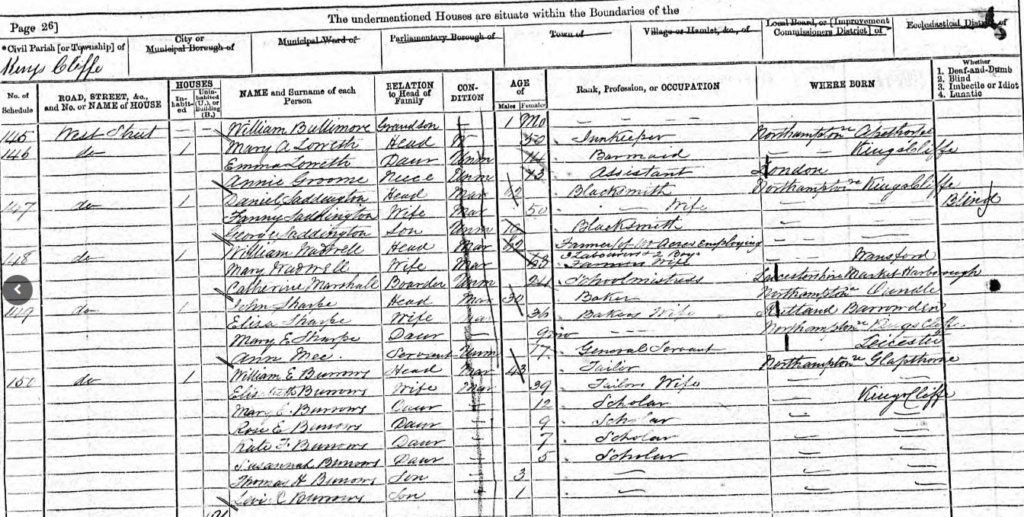 Page 26]
The undermentioned Houses are situate within the Boundaries of the
*Civil Parish [or Township] of
City or Municipal Borough of
Municipal Ward of
Parliamentary Borough of
Town of
Village or Hamlet, &c., of
Local Board, or [Improvement Commissioners District] of
Ecclesiastical District of
Kings Cliffe
No. of Schedule
ROAD, STREET, &c., and No. or NAME of HOUSE
HOUSES
Inhabited
Uninhabited (U.), or Building (B.)
NAME and Surname of each Person
RELATION to Head of Family
CONDITION
AGE of
Males
Females
Rank, Profession, or OCCUPATION
WHERE BORN
Whether
1. Deaf-and-Dumb
2. Blind
3. Imbecile or Idiot
4. Lunatic
William Bullimore Grandson 1 Mo
145 West Street Northamptonre Apethorpe
146 do 1 Mary A Loweth Head W 50 Innkeeper Kingscliffe
Emma Loweth Daur Unm Barmaid
Annie Groome Neice Unm Assistant London
147 do 1 Daniel Saddington Head Mar Blacksmith Northamptonre Kingscliffe
Fanny Saddington Wife Mar 50 Wife Blind
George Saddington Son Unm Blacksmith
148 do 1 William Head Mar 62 Farmer of Acres Employing
Labourers 2 Boys
Mary Wife Mar Farmers Wife Wansford
Catherine Marshall Boarder Unm 24 Schoolmistress Leicestershire Market Harborough
149 do 1 John Sharpe Head Mar 30 Baker Northamptonre Oundle
Eliza Sharpe Wife Mar 36 Bakers Wife Rutland Barrowden
Mary E Sharpe Daur 9 mo Northamptonre Kings Cliffe
Ann Mee Servant Unm 17 General Servant Leicester
150 do 1 William E Burrows Head Mar 43 Tailor Northamptonre Glapthorne
Elizabeth Burrows Wife Mar 39 Tailors Wife
Mary E. Burrows Daur 12 Scholar Kings Cliffe
Rose E Burrows Daur 9 Scholar
Kate F Burrows Daur 7 Scholar
Susannah Burrows Daur 5 Scholar
Thomas H Burrows Son 3
Levi C Burrows Son 1